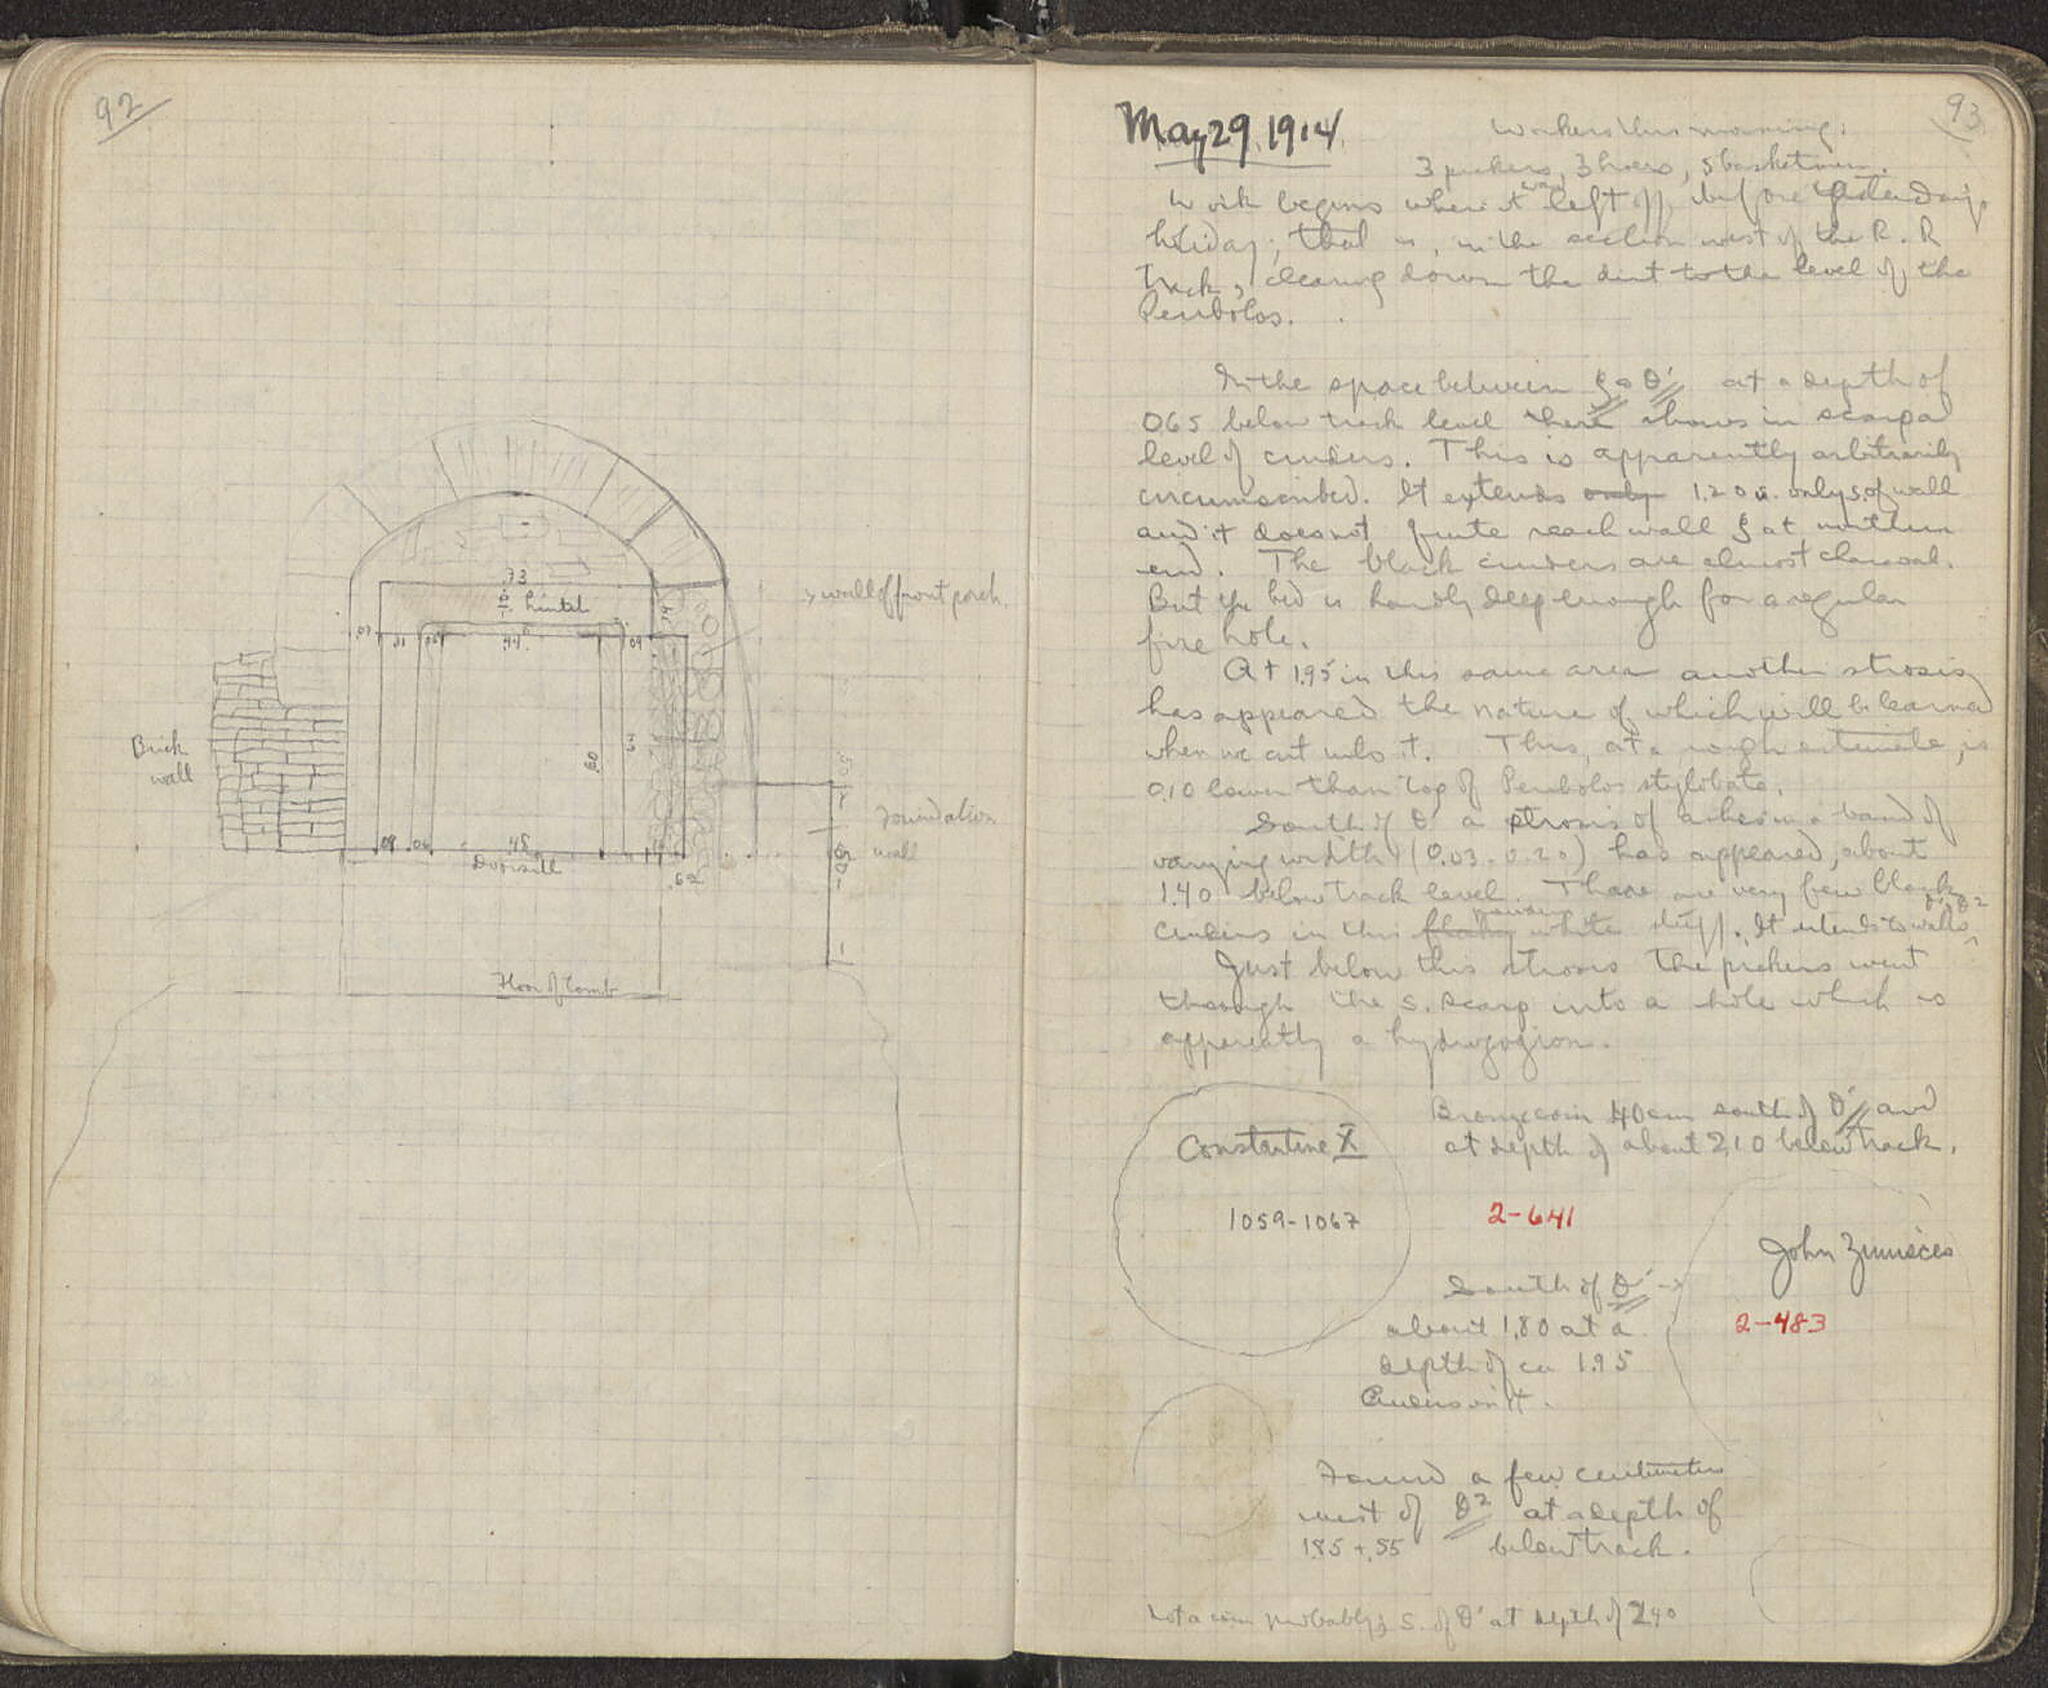 92
.73
Lintel
wall of front porch
.07
.11
.44
.09
.80
Brick
wall
Foundation
wall
.50
.09
.06
.48
Doorsill
.14
.62
Floor of tomb
93
May 29, 1914
Workers this morning:
3 pickers, 3 hoers, 5 basketmen.
Work begins where it was left off before yesterday's
holiday; that is, in the section west of the R. R
Track, clearing down the dirt to the level of the
Peribolos.
In the space between ξ & θ' at a depth of
0.65 below track level there shows in scarp a
level of cinders. This is apparently arbitrarily
circumscribed. It extends only 1.20 m. only s. of wall
and it does not quite reach wall ξ at northern
end. The black cinders are almost charcoal.
But the bed is hardly deep enough for a regular
fire hole.
At 1.95 in this same area another strosis
has appeared the nature of which will be learned
when we cut into it. This, at a rough estimate, is
0.10 lower than top of Peribolos stylobate.
South of θ' a strosis of ashes in a band of
varying width (0.03-0.20) has appeared, about
1.40 below track level. There are very few black
cinders in this powdery white stuff. It extends to walls θ', θ2
Just below this strosis the pickers went
through the s. scarp into a hole which is
apparently a hydragogion.
Bronze coin 40 cm south of θ' and
at depth of about 2.10 below track.
Constantine X
1059-1067
2-641
John Zimisces
South of θ' →
about 1.80 at a
depth of ca 1.95
2-483
Found a few centimeters
west of θ2 at a depth of
1.85 + .55 below track.
Not a coin probably; S. of θ' at depth of 2.40